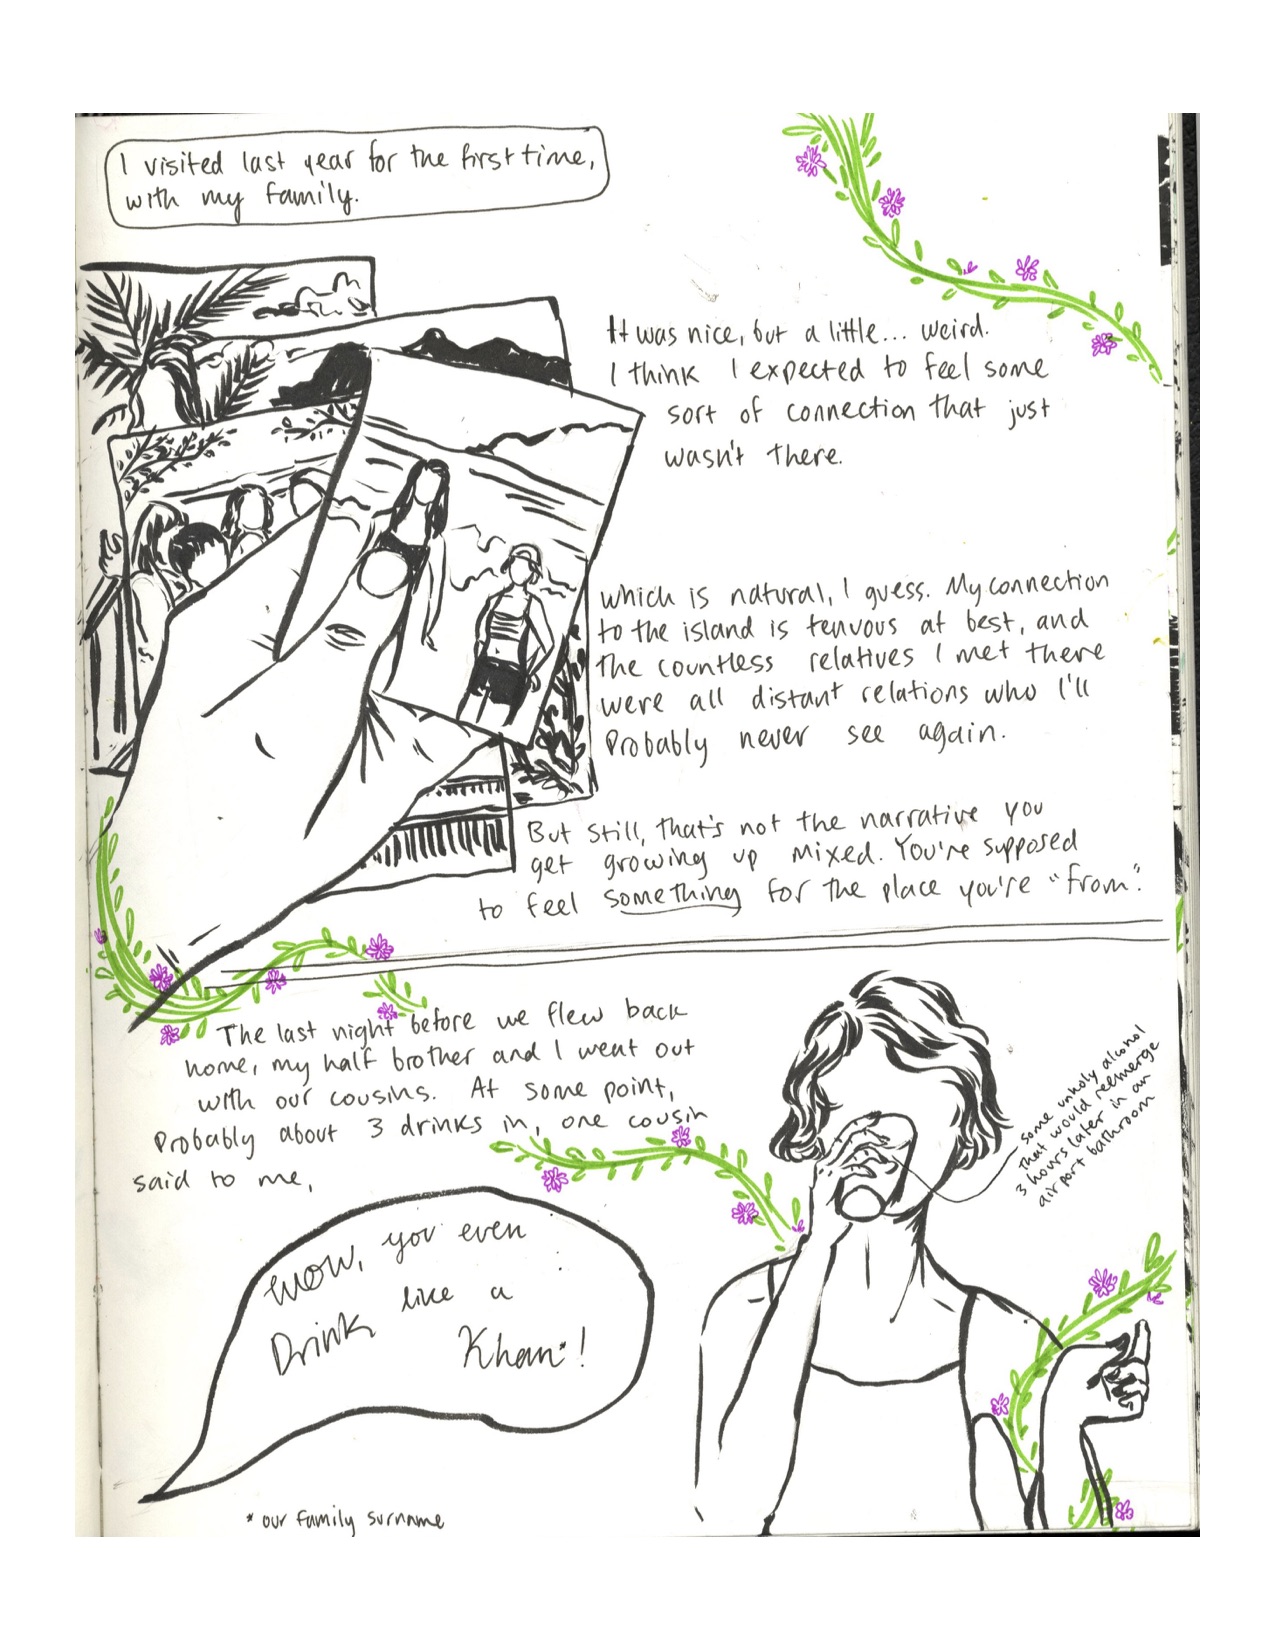 I visited last year for the first time,
with my family.
It was nice, but a little... weird.
I think I expected to feel some
sort of connection that just
wasn't there.
which is natural, I guess. My connection
to the island is tenuous at best, and
the countless relatives I met there
were all distant relations who I'll
Probably never see again.
But still, that's not the narrative you
get growing up mixed. You're supposed
to feel something for the place you're "from".
The last night before we flew back
home, my half brother and I went out
with our cousins. At some point,
Probably about 3 drinks in, one cousin
said to me,
some unholy alcohol
that would reemerge
3 hours later in an
airport bathroom
Wow, you even
Drink like a
Khan*!
* our family surname